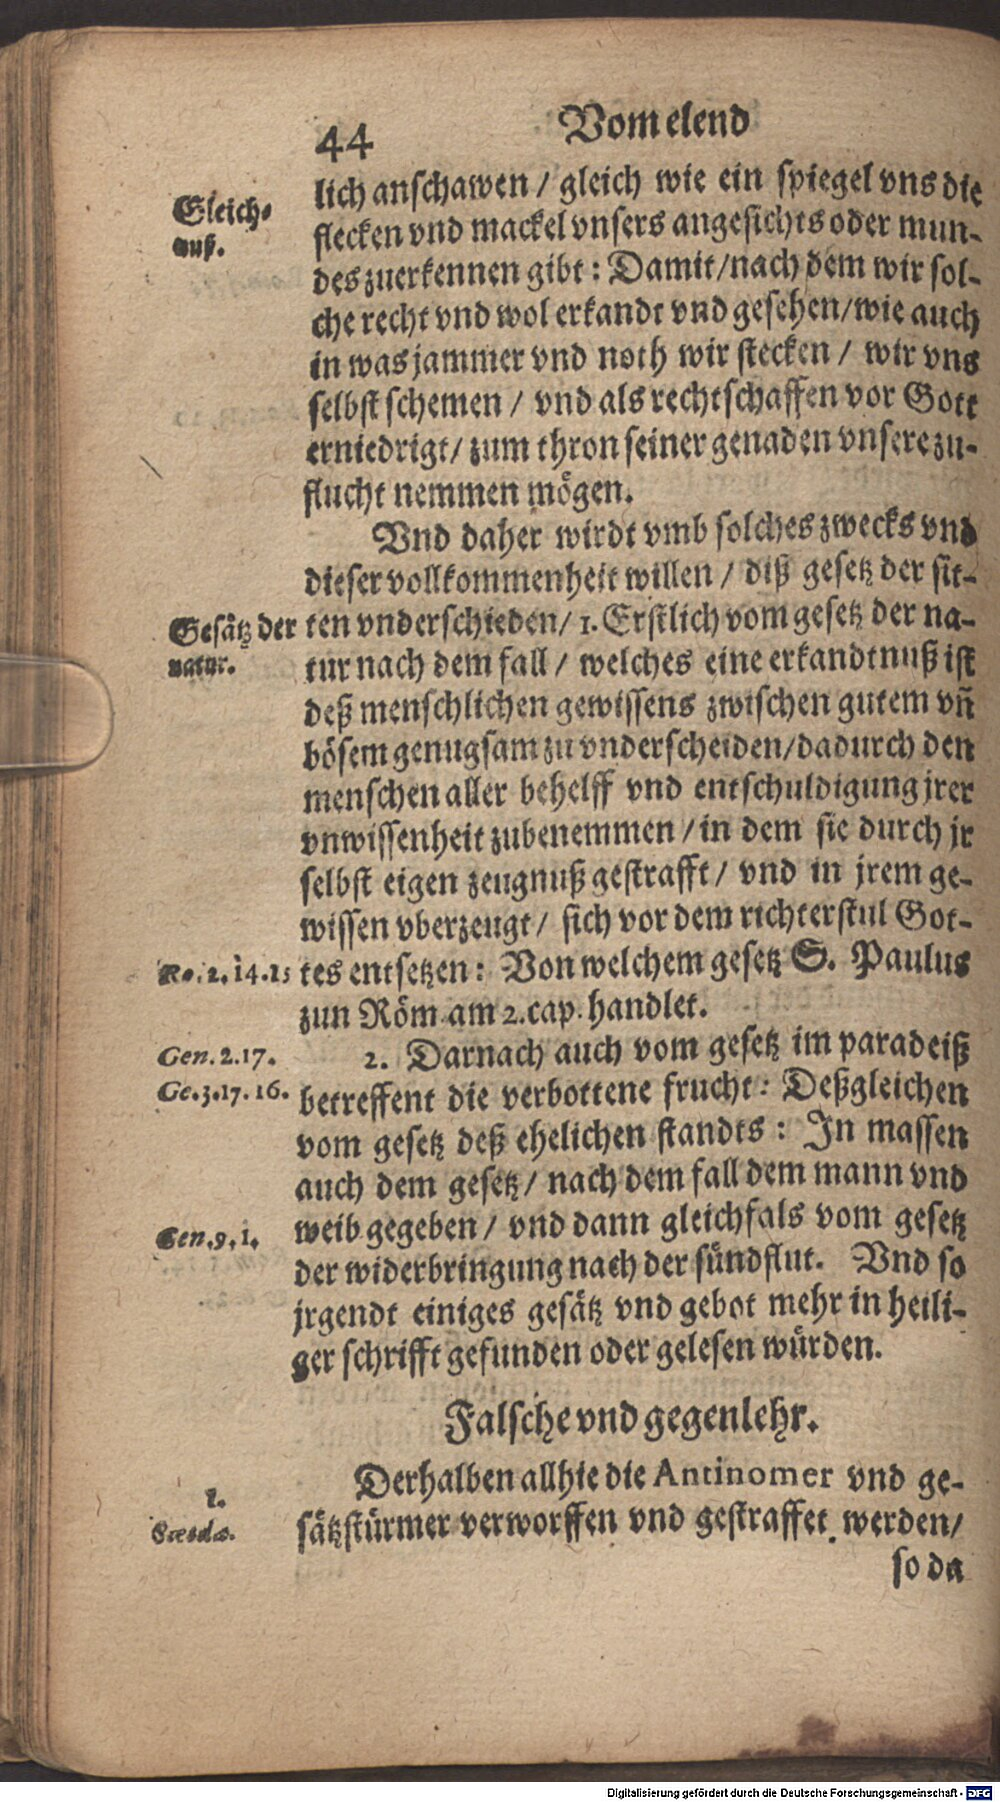 44
Vom elend
lich anschawen / gleich wie ein spiegel vns die
Gleich-
nuß.
flecken vnd mackel vnsers angesichts oder mun-
des zuerkennen gibt : Damit / nach dem wir sol-
che recht vnd wol erkandt vnd gesehen / wie auch
in was jammer vnd noth wir stecken / wir vns
selbst schemen / vnd als rechtschaffen vor Gott
erniedrigt / zum thron seiner genaden vnsere zu-
flucht nemmen mögen.
Vnd daher wirdt vmb solches zwecks vnd
dieser vollkommenheit willen / diß gesetz der sit-
Gesätz der
natur.
ten vnderschieden / 1. Erstlich vom gesetz der na-
tur nach dem fall / welches eine erkandtnuß ist
deß menschlichen gewissens zwischen gutem vñ
bösem genugsam zu vnderscheiden / dadurch den
menschen aller behelff vnd entschuldigung jrer
vnwissenheit zubenemmen / in dem sie durch jr
selbst eigen zeugnuß gestrafft / vnd in jrem ge-
wissen vberzeugt / sich vor dem richterstul Got-
Ro. 2. 14. 15
tes entsetzen : Von welchem gesetz S. Paulus
zun Röm. am 2. cap. handlet.
Gen. 2. 17.
2. Darnach auch vom gesetz im paradeiß
Ge. 3. 17. 16.
betreffent die verbottene frucht : Deßgleichen
vom gesetz deß ehelichen standts : In massen
auch dem gesetz / nach dem fall dem mann vnd
Gen. 9. 1.
weib gegeben / vnd dann gleichfals vom gesetz
der widerbringung nach der sündflut. Vnd so
jrgendt einiges gesätz vnd gebot mehr in heili-
ger schrifft gefunden oder gelesen würden.
Falsche vnd gegenlehr.
1.
Derhalben allhie die Antinomer vnd ge-
sätzstürmer verworffen vnd gestraffet werden /
so da
Digitalisierung gefördert durch die Deutsche Forschungsgemeinschaft - DFG